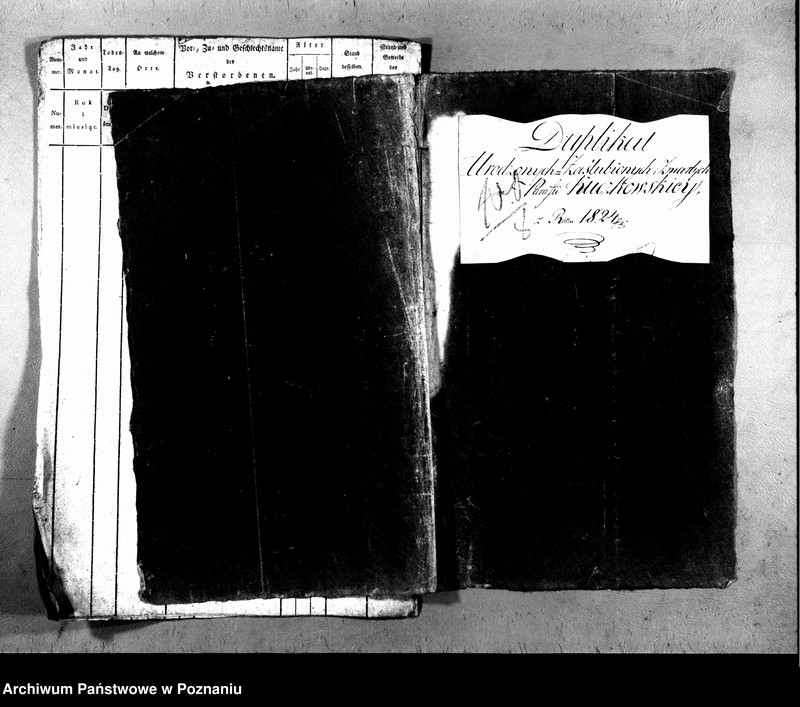 Num-
mer.
Jahr
und
Monat.
Todes-
Tag.
An welchem
Orte.
Vor-, Zu- und Geschlechtsname
des
Verstorbenen.
Alter
Jahr
Mo-
nat.
Tage.
Stand
desselben.
Stand und
Gewerbe
des
Nu-
mer.
Rok
i
miesiąc.
Duplikat
Urodzonych - Zaślubionych i Zmarłych
Parafii Kuczkowskiey.
z Roku 1824
Archiwum Państwowe w Poznaniu